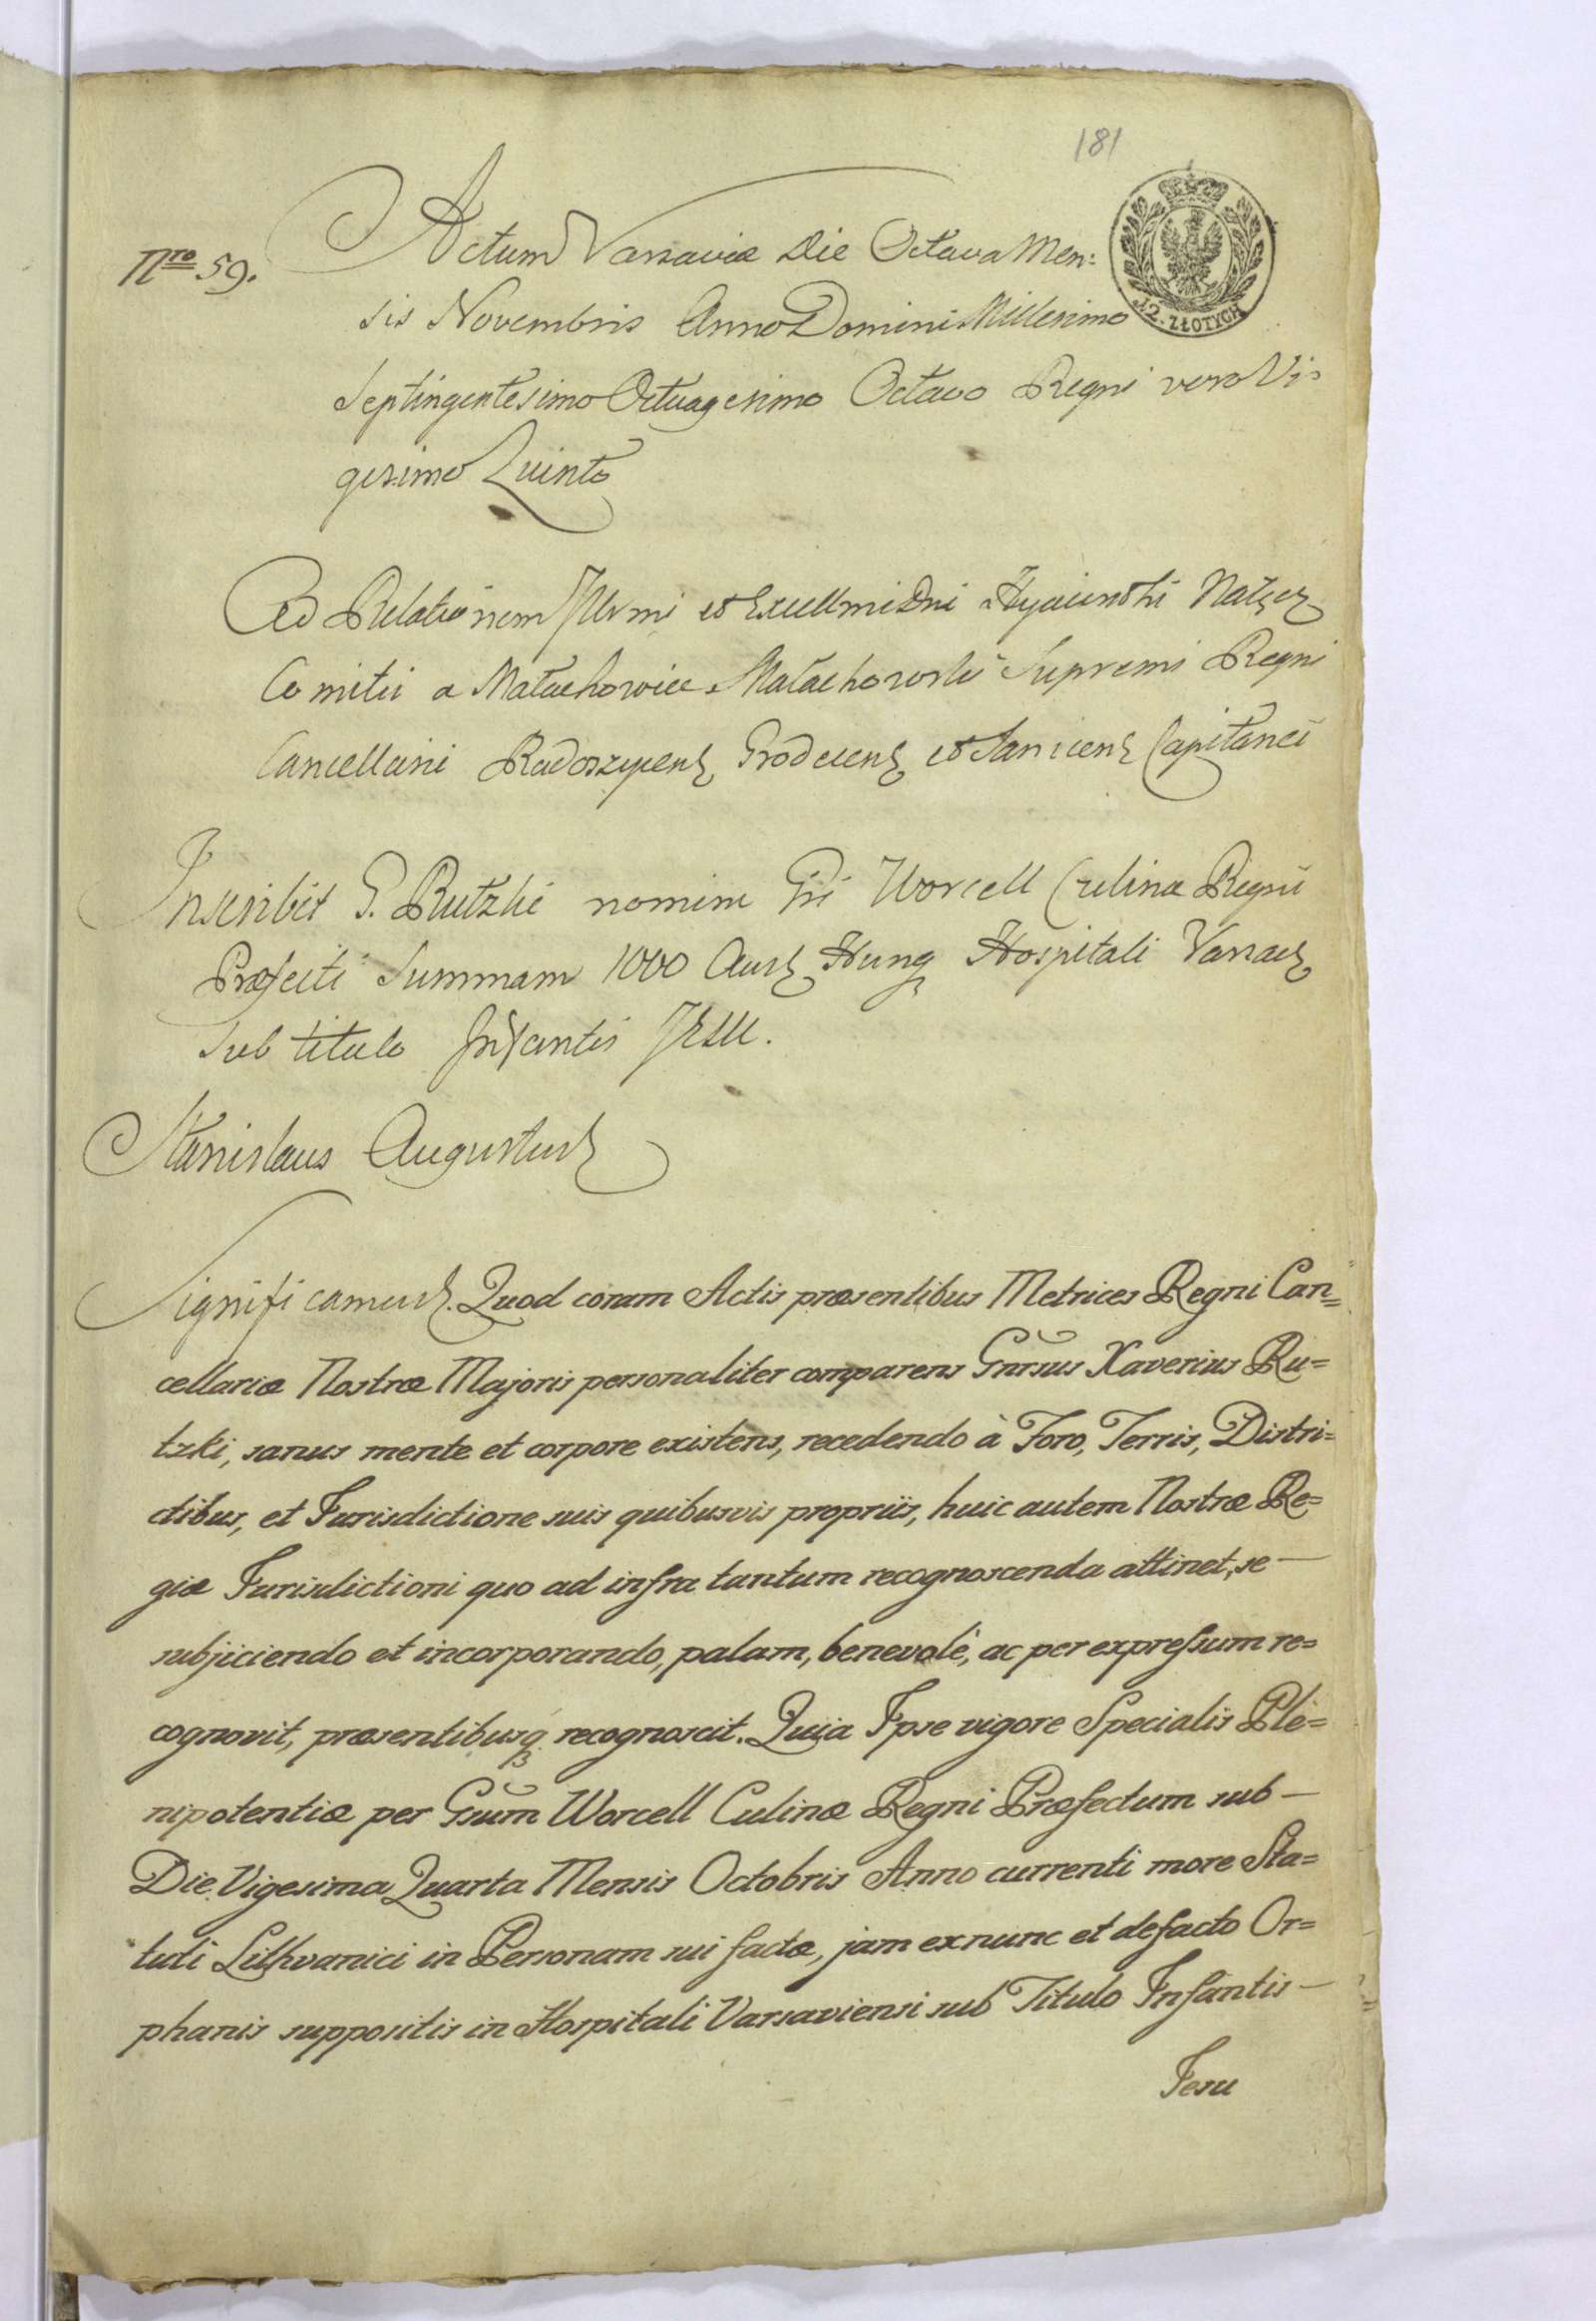 181
Nro 59.
Actum Varsaviæ Die Octava Men:
sis Novembris Anno Domini Millesimo
12. ZŁOTYCH
Septingentesimo Octuagesimo Octavo Regni vero Vi=
gesimo Quinto
Ad Relationem Illrmi et Excellmi Dni Hyacinthi Nałęcz
Comitis a Małachowice Małachowski Supremi Regni
Cancellarii Radoszycens Grodecens et Capitanei
Inscribit G. Rutzki nomine Gsi Worcell Culinæ Regni
Præfecti Summam 1000 Aur Hung Hospitali Varsav
sub titulo Infantis JESU.
Stanislaus Augustus
Significamus. Quod coram Actis præsentibus Metrices Regni Can=
cellariæ Nostræ Majoris personaliter comparens Gnrsus Xaverius Ru=
tzki, sanus mente et corpore existens, recedendo à Foro, Terris, Distri=
ctibus, et Jurisdictione suis quibusvis propriis, huic autem Nostræ Re=
giæ Jurisdictioni quo ad infra tantum recognoscenda attinet, se —
subjiciendo et incorporando, palam, benevolè, ac per expreſsum re=
cognovit, præsentibusq recognoscit. Quia Ipse vigore Specialis Ple=
nipotentiæ per Gsum Worcell Culinæ Regni Præfectum sub —
Die Vigesima Quarta Mensis Octobris Anno currenti more Sta=
tuti Lithvanici in Personam sui factæ, jam exnunc et defacto Or=
phanis suppositis in Hospitali Varsaviensi sub Titulo Infantis —
Jesu